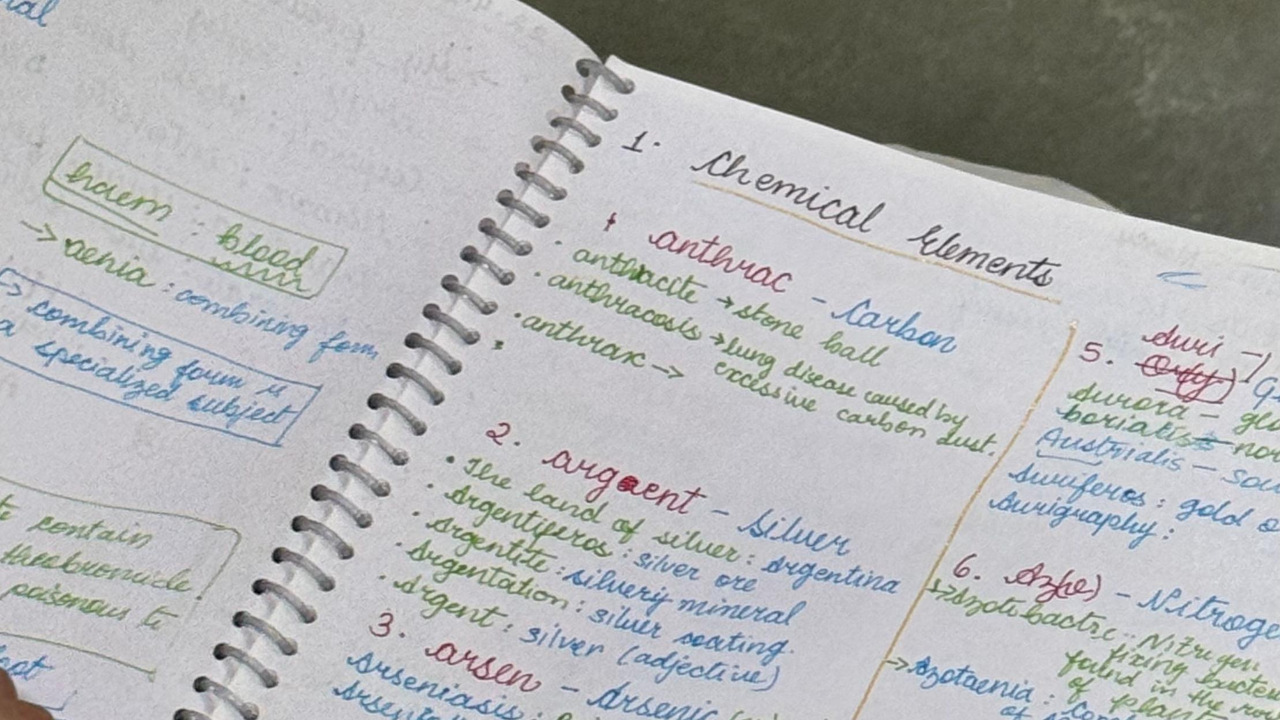 haem : blood
→ aenia : combining form
→ combining form is
a specialized subject
contain
poisonous te
1. Chemical Elements
anthrac - Carbon
• anthracite → stone ball
• anthracosis → lung disease caused by
excessive carbon dust.
• anthrax →
2. argent - Silver
• The land of silver : Argentina
• Argentiferos : silver ore
• Argentite : silvery mineral
• Argentation : silver coating.
• Argent : silver (adjective)
3. arsen - Arsenic
Arseniasis :
5. Auri -
Aurora -
borialis -
Australis - Sou
Auriferos : gold o
Aurigraphy :
6. Az(o) - Nitroge
→ Azotobactic : Nitrogen
fixing bacte
found in the roo
of plan
→ Azotaenia :